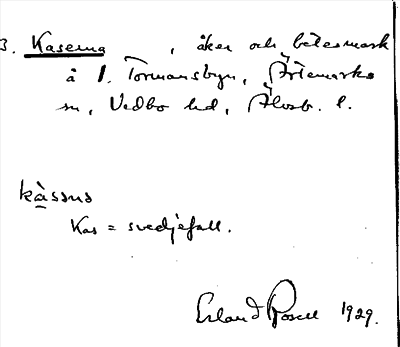 3. Kaserna , åker och betesmark
å 1. Tormansbyn, Ärtemarks
sn, Vedbo hd, Älvsb. l.
kàssnɷ
Kas = svedjefall.
Erland Rosell 1929.